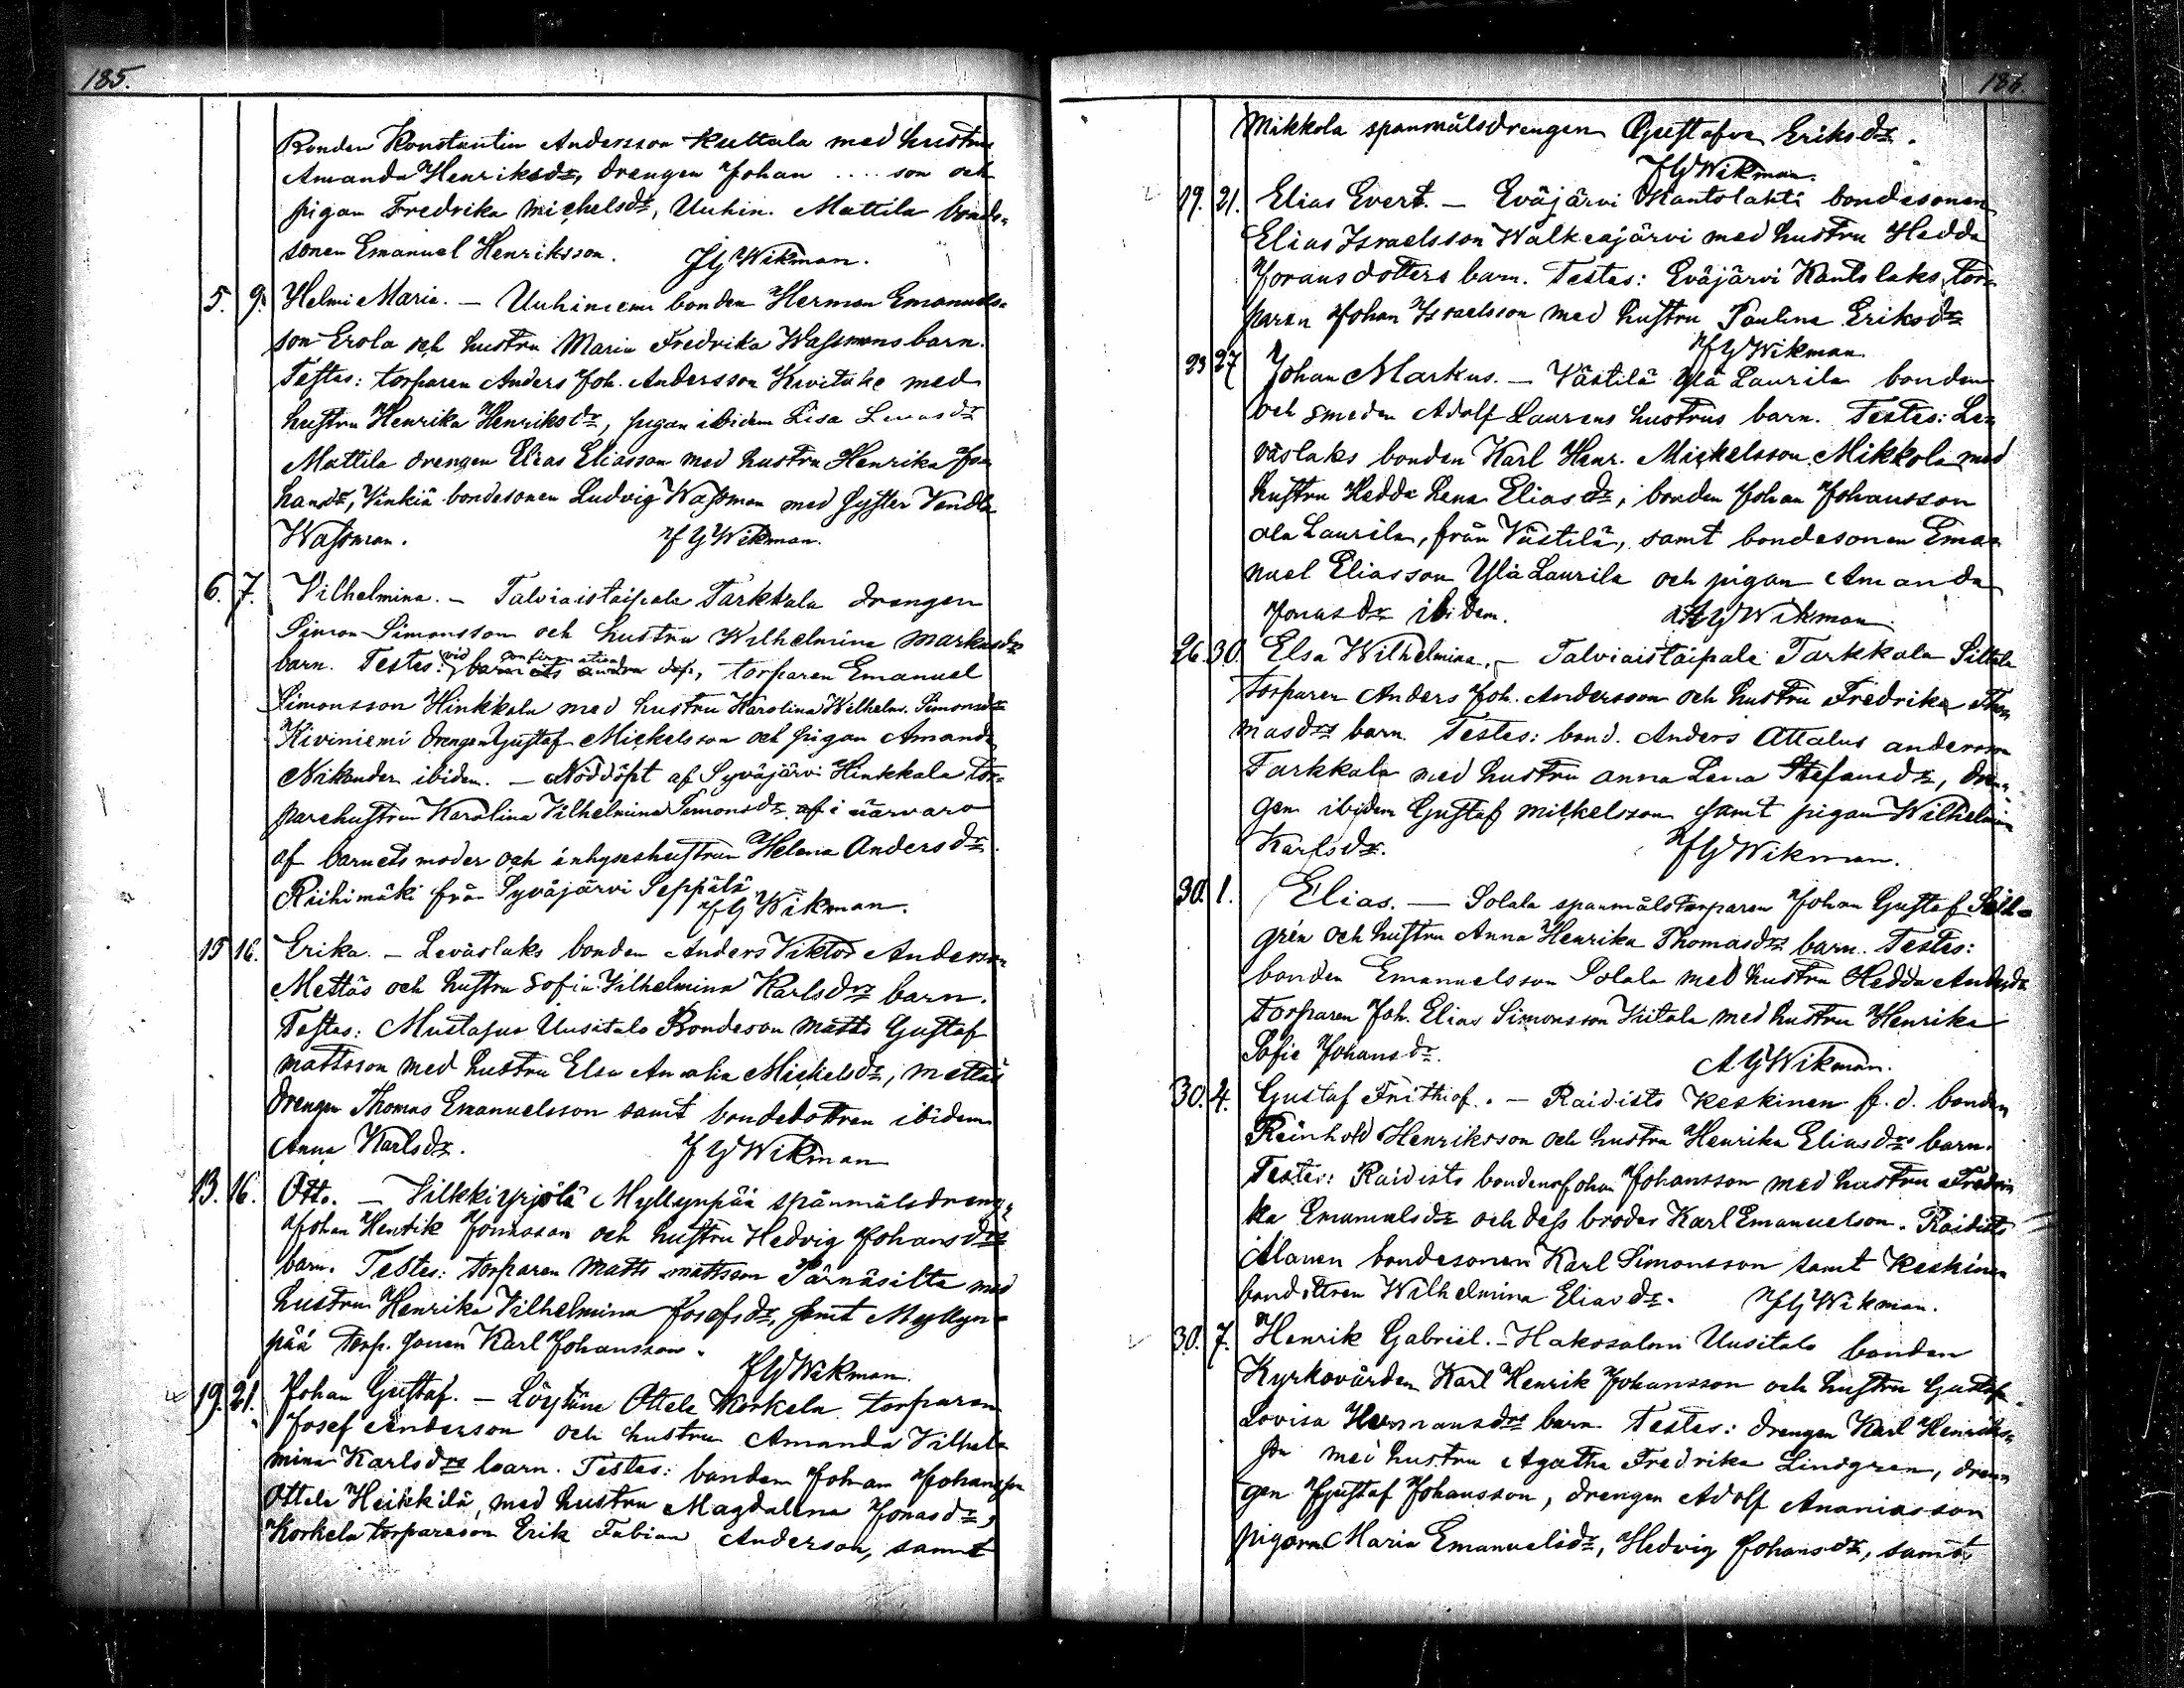 185.
Bonden Konstantin Andersson Kuttala med hustru
Amanda Henriksdr, drengen Johan .... son och
pigan Fredrika Michelsdr, Uuhin. Mattila bonde-
sonen Emanuel Henriksson. J G Wikman.
5. 9. Helmi Maria. – Uuhiniemi bonden Herman Emanuels-
son Erola och hustru Maria Fredrika Wassmans barn.
Testes: torparen Anders Joh. Andersson med
hustru Henrika Henriksdr, pigan ibidem Lisa
Mattila drengen Elias Eliasson med hustru Henrika Jo-
hansdr, Vinkiä bondesonen Ludvig Wassman med syster Vendla
Wassman. J G Wikman.
6. 7. Vilhelmina. – Talviaistaipale Tarkkala drengen
Simon Simonsson och hustru Wilhelmina Markusdrs
barn. Testes: vid confirmation barnets dop, torparen Emanuel
Simonsson Hinkkala med hustru Karolina Wilhelm. Simonsdr
Kiviniemi drengen Gustaf Mickelsson och pigan Amanda
Nikander ibidem. – Nöddöpt af Syväjärvi Hinkkala tor-
parehustrun Karolina Vilhelmina Simonsdr i närvaro
af barnets moder och inhyseshustrun Helena Andersdr
Riihimäki från Syväjärvi Seppälä J G Wikman.
15 16. Erika. – Leväslaks bonden Anders Viktor Anderson
Mettäs och hustru Sofia Vilhelmina Karlsdrs barn.
Testes: Mustajus Uusitalo Bondeson Matts Gustaf
Mattsson med hustru Elsa Amalia Michelsdr, Mettäs
drengen Thomas Emanuelsson samt bondedottren ibidem
Anna Karlsdr. J G Wikman
13. 16. Otto. – Vilkkiyrjölä Myllynpää spanmålsdreng
Johan Henrik Jonasson och hustru Hedvig Johansdrs
barn. Testes: torparen Matts Mattsson Pärnäsilta med
hustru Henrika Vilhelmina Josefsdr, samt Myllyn-
pää torp. sonen Karl Johansson. J G Wikman.
19. 21. Johan Gustaf. – Löytäne Ottele Korkela torparen
Josef Anderson och hustru Amanda Vilhel-
mina Karlsdrs barn. Testes: bonden Johan Johansson
Ottele Heikkilä, med hustru Magdalena Jonasdr,
Korkela torpareson Erik Fabian Anderson, samt
186.
Mikkola spanmålsdrengen Gustafva Eriksdr.
J G Wikman.
19. 21. Elias Evert. – Eväjärvi Mantolahti bondesonen
Elias Israelsson Walkeajärvi med hustru Hedda
Joransdotters barn. Testes: Eväjärvi Kantolaks tor-
paren Johan Israelsson med hustru Paulina Eriksdr
J G Wikman.
23 27 Johan Markus. – Västilä Ylä Laurila bonden
och smeden Adolf Laurens hustrus barn. Testes: Le-
väslaks bonden Karl Henr. Mickelsson Mikkola med
hustru Hedda Lena Eliasdr, bonden Johan Johansson
ala Laurila, från Västilä, samt bondesonen Ema-
nuel Eliasson Ylä Laurila och pigan Amanda
Jonasdr ibidem. J G Wikman.
26. 30. Elsa Wilhelmina. – Talviaistaipale Tarkkala Siltala
torparen Anders Joh. Andersson och hustru Fredrika Tho-
masdrs barn. Testes: bond. Anders Attalus anderson
Tarkkala med hustru Anna Lena Stefansdr, dren-
gen ibidem Gustaf Mickelsson samt pigan Wilhelmina
Karlsdr. J G Wikman.
30. 1. Elias. – Solala spanmålstorparen Johan Gustaf
grén och hustru Anna Henrika Thomasdrs barn. Testes:
bonden Emanuelsson Solala med hustru Hedda Andersdr
torparen Joh. Elias Simonsson med hustru Henrika
Sofie Johansdr. J G Wikman.
30. 4. Gustaf Frithiof. – Raidisto Keskinen f.d. bonden
Reinhold Henriksson och hustru Henrika Eliasdrs barn.
Testes: Raidisto bonden Johan Johansson med hustru Fredri-
ka Emanuelsdr och dess broder Karl Emanuelson. Raidisto
Alanen bondesonen Karl Simonsson samt Keskinen
bonddottren Wilhelmina Eliasdr. J G Wikman.
30. 7. Henrik Gabriel. – Hakosalmi Uusitalo bonden
Kyrkovärden Karl Henrik Johansson och hustru Gustafva
Lovisa Hermansdrs barn. Testes: drengen Karl Henriks-
son med hustru Agatha Fredrika Lindgren, dren-
gen Gustaf Johansson, drengen Adolf Ananiasson
pigorna Maria Emanuelsdr, Hedvig Johansdr, samt